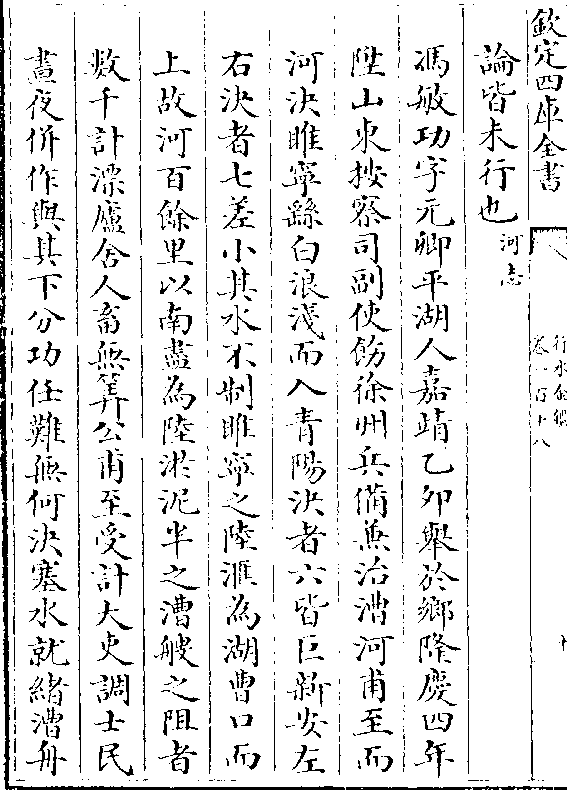 欽定四庫全書
行水金鑑
卷一百十八
論皆未行也河志
馮敏功字元卿平湖人嘉靖乙夘舉於鄉隆慶四年
陞山東按察司副使飭徐州兵備兼治漕河甫至而
河決睢寧繇白浪淺而入青陽決者六皆巨新安左
右決者七差小其水不制睢寧之陸滙為湖曹口而
上故河百餘里以南盡為陸淤泥半之漕艘之阻者
數千計漂廬舍人畜無筭公甫至受計大吏調士民
晝夜併作與其下分功任難無何決塞水就緒漕舟